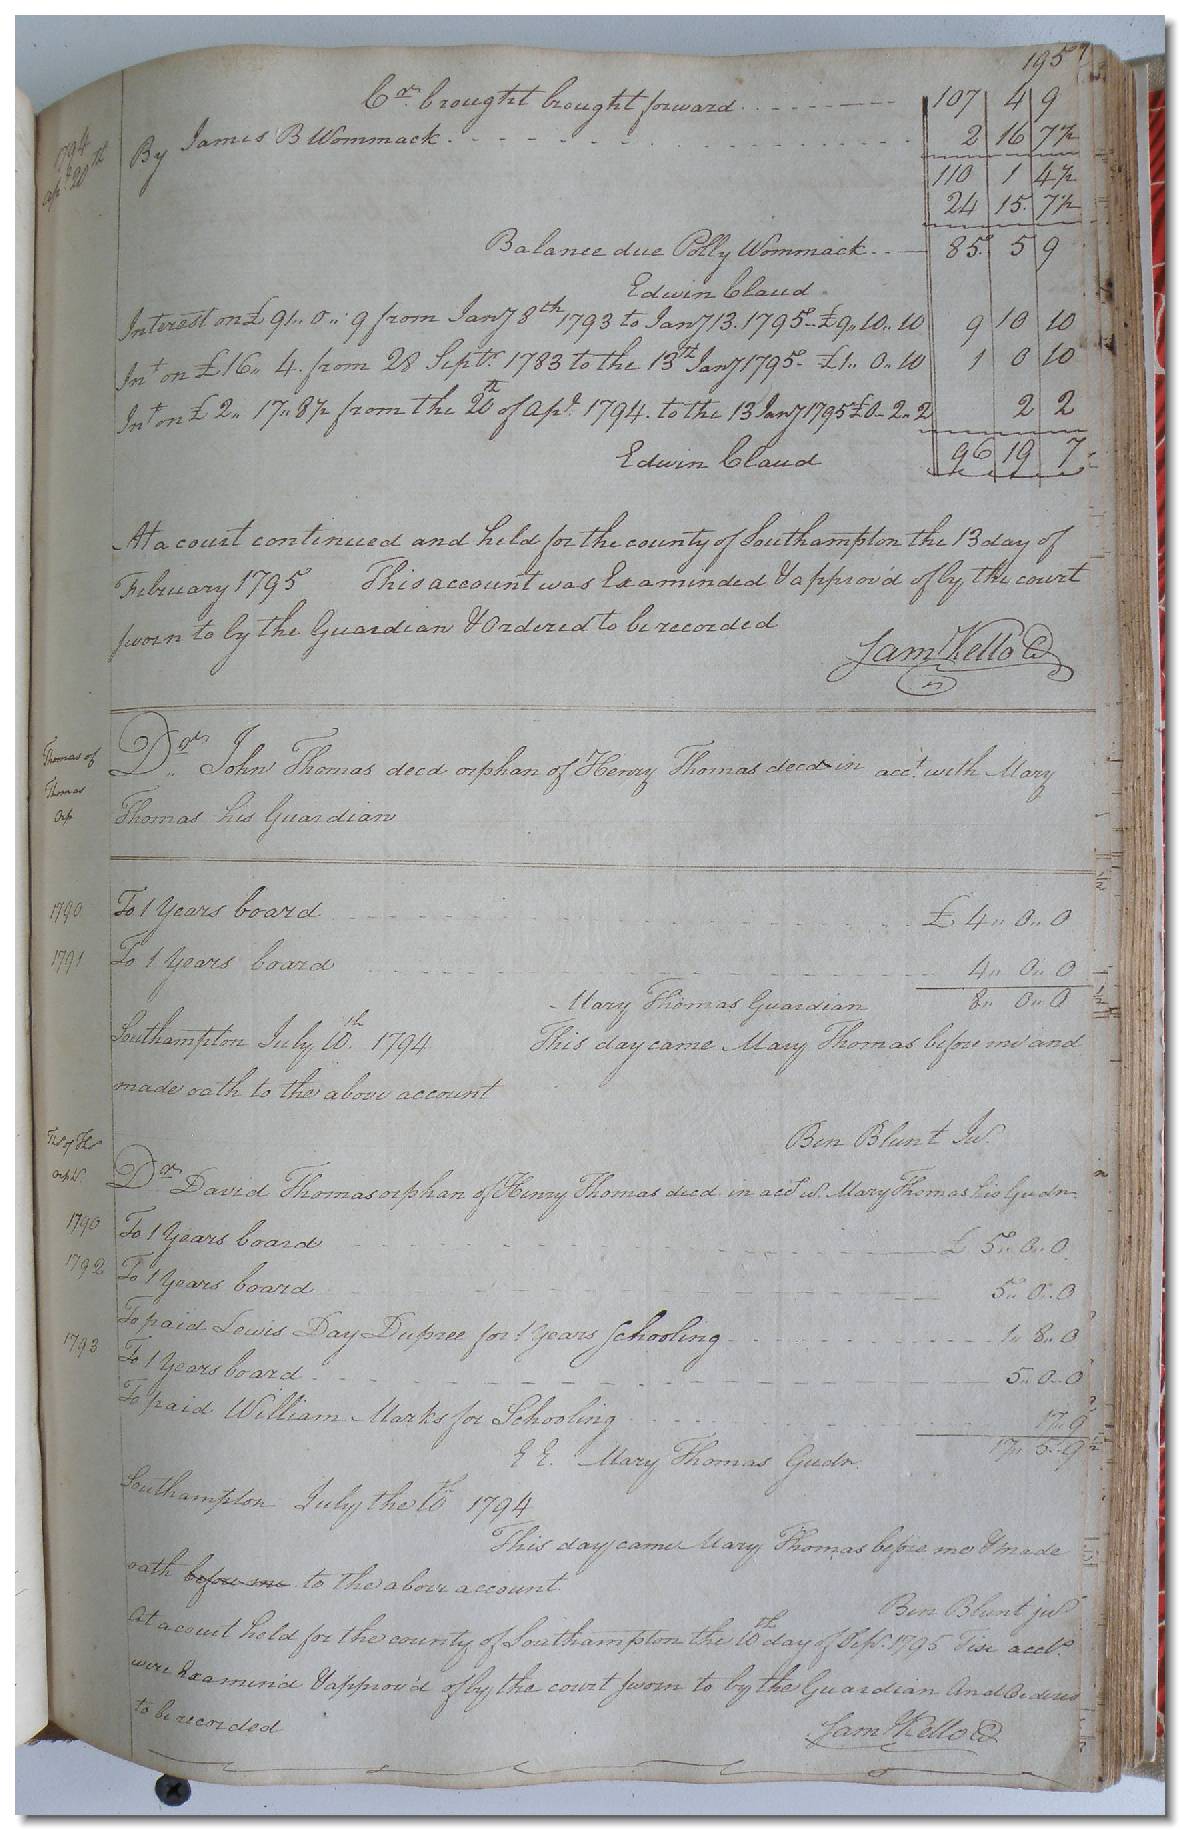 195
Cr. brought brought forward 107 4 9
1794
apl. 20th
By James B Wommack 2 16 7½
110 1 4½
24 15 7½
Balance due Polly Wommack 85 5 9
Edwin Claud
Interest on £91..0..9 from Jany 8th 1793 to Jany 13. 1795 - £9..10..10 9 10 10
Int on £16.. 4. from 28 Septr. 1783 to the 13th Jany 1795 - £1..0..10 1 0 10
Int on £2.. 17..8½ from the 20th of Apl. 1794. to the 13 Jany 1795 £0..2..2 2 2
Edwin Claud 96 19 7
At a court continued and held for the county of Southampton the 13 day of
February 1795 This account was Examinded & approv'd of by the court
sworn to by the Guardian & Ordered to be recorded
Sam Kello C
Thomas of
Thomas
orp
Dr. John Thomas decd orphan of Henry Thomas decd in acct. with Mary
Thomas his Guardian
1790 To 1 Years board £4.. 0.. 0
1791 To 1 Years board 4.. 0.. 0
Mary Thomas Guardian 8.. 0.. 0
Southampton July 10th. 1794 This day came Mary Thomas before me and
made oath to the above account
Ben Blunt Jur.
Dr. David Thomas orphan of Henry Thomas decd in acct w. Mary Thomas his Gudn
1790 To 1 Years board £ 5.. 0.. 0
1792 To 1 Years board 5.. 0.. 0
To paid Lewis Day Dupree for 1 Years Schooling 1.. 8.. 0
1793 To 1 Years board 5.. 0.. 0
To paid William Marks for Schooling 17.. 9
E E. Mary Thomas Gudn. 17.. 5.. 9
Southampton July the 10th 1794
This day came Mary Thomas before me & made
oath before me to the above account
Ben Blunt jur
At a court held for the county of Southampton the 10th day of Sept. 1795 accts.
were Examin'd & approv'd of by the court sworn to by the Guardian And Ordered
to be recorded
Sam Kello C